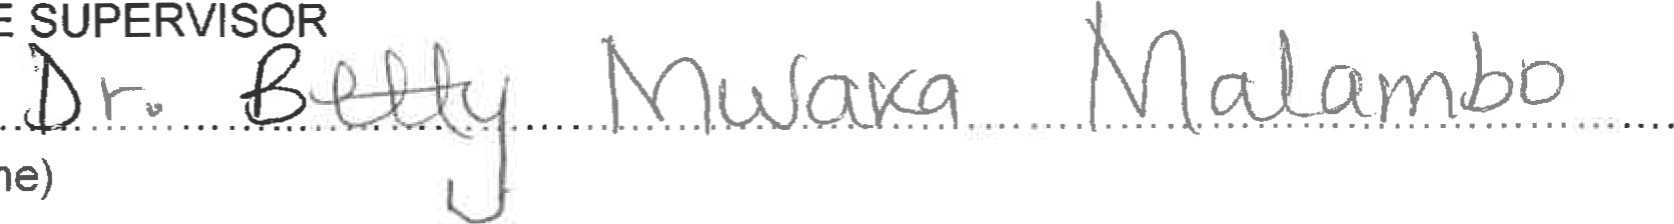 E SUPERVISOR
Dr. Betty Mwaka Malambo
ne)